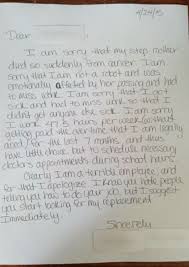 4/24/15
Dear
I am sorry that my step mother
died so suddenly from cancer. I am
sorry that I am not a robot and was
emotionally affected by her passing and had
to miss work. I am sorry that I got
sick and had to miss work so that I
didn't get anyone else sick. I am sorry
I work 49.5 hours per week (without
getting paid the overtime that I am legally
owed) for the last 7 months, and thus
have little choice but to schedule necessary
doctors appointments during school hours.
Clearly I am a terrible employee, and
for that I apologize. I know you hate people
telling you how to do your job, but I suggest
you start looking for my replacement
immediately.
Sincerely